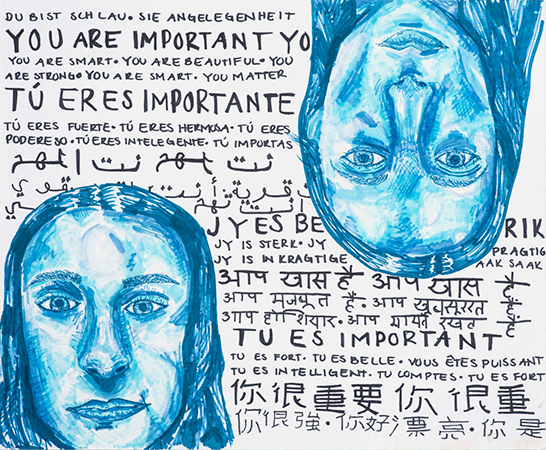 DU BIST SCHLAU. SIE ANGELEGENHEIT
YOU ARE IMPORTANT YO
YOU ARE SMART • YOU ARE BEAUTIFUL • YOU
ARE STRONG • YOU ARE SMART. YOU MATTER
TÚ ERES IMPORTANTE
TÚ ERES FUERTE • TÚ ERES HERMOSA • TÚ ERES
PODERESO • TÚ ERES INTELEGENTE • TÚ IMPORTAS
JY ES BE RIK
JY IS STERK • JY PRAGTIG
JY IS IN KRAGTIGE AAK SAAK
आप खास है आप खास
आप मजबूत है • आप खूबसूरत
आप होशियार • आप मायने रखते
TU ES IMPORTANT
TU ES FORT • TU ES BELLE • VOUS ÊTES PUISSANT
TU ES INTELLIGENT. TU COMPTES • TU ES FORT
你很重要 你很重
你很強 • 你好漂亮 • 你是